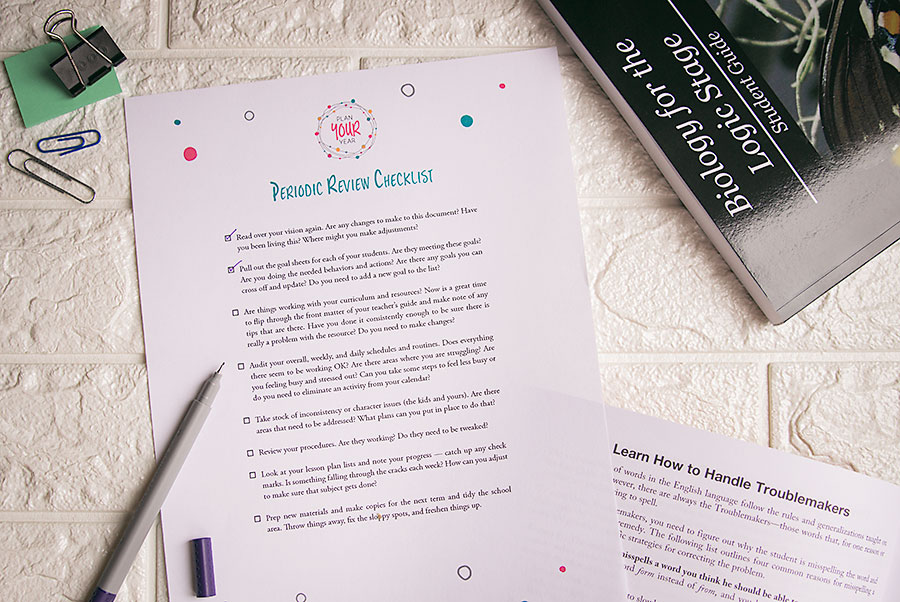 PLAN
YOUR
YEAR
Periodic Review Checklist
Read over your vision again. Are any changes to make to this document? Have
you been living this? Where might you make adjustments?
Pull out the goal sheets for each of your students. Are they meeting these goals?
Are you doing the needed behaviors and actions? Are there any goals you can
cross off and update? Do you need to add a new goal to the list?
Are things working with your curriculum and resources? Now is a great time
to flip through the front matter of your teacher's guide and make note of any
tips that are there. Have you done it consistently enough to be sure there is
really a problem with the resource? Do you need to make changes?
Audit your overall, weekly, and daily schedules and routines. Does everything
there seem to be working OK? Are there areas where you are struggling? Are
you feeling busy and stressed out? Can you take some steps to feel less busy or
do you need to eliminate an activity from your calendar?
Take stock of inconsistency or character issues (the kids and yours). Are there
areas that need to be addressed? What plans can you put in place to do that?
Review your procedures. Are they working? Do they need to be tweaked?
Look at your lesson plan lists and note your progress — catch up any check
marks. Is something falling through the cracks each week? How can you adjust
to make sure that subject gets done?
Prep new materials and make copies for the next term and tidy the school
area. Throw things away, fix the sloppy spots, and freshen things up.
Biology for the
Logic Stage
Student Guide
Learn How to Handle Troublemakers
of words in the English language follow the rules and generalizations taught
wever, there are always the Troublemakers—those words that, for one reason
ing to spell.
emakers, you need to figure out why the student is misspelling the word and
remedy. The following list outlines four common reasons for misspelling
ic strategies for correcting the problem.
misspells a word you think he should be able
ord form instead of from, and you
to slow